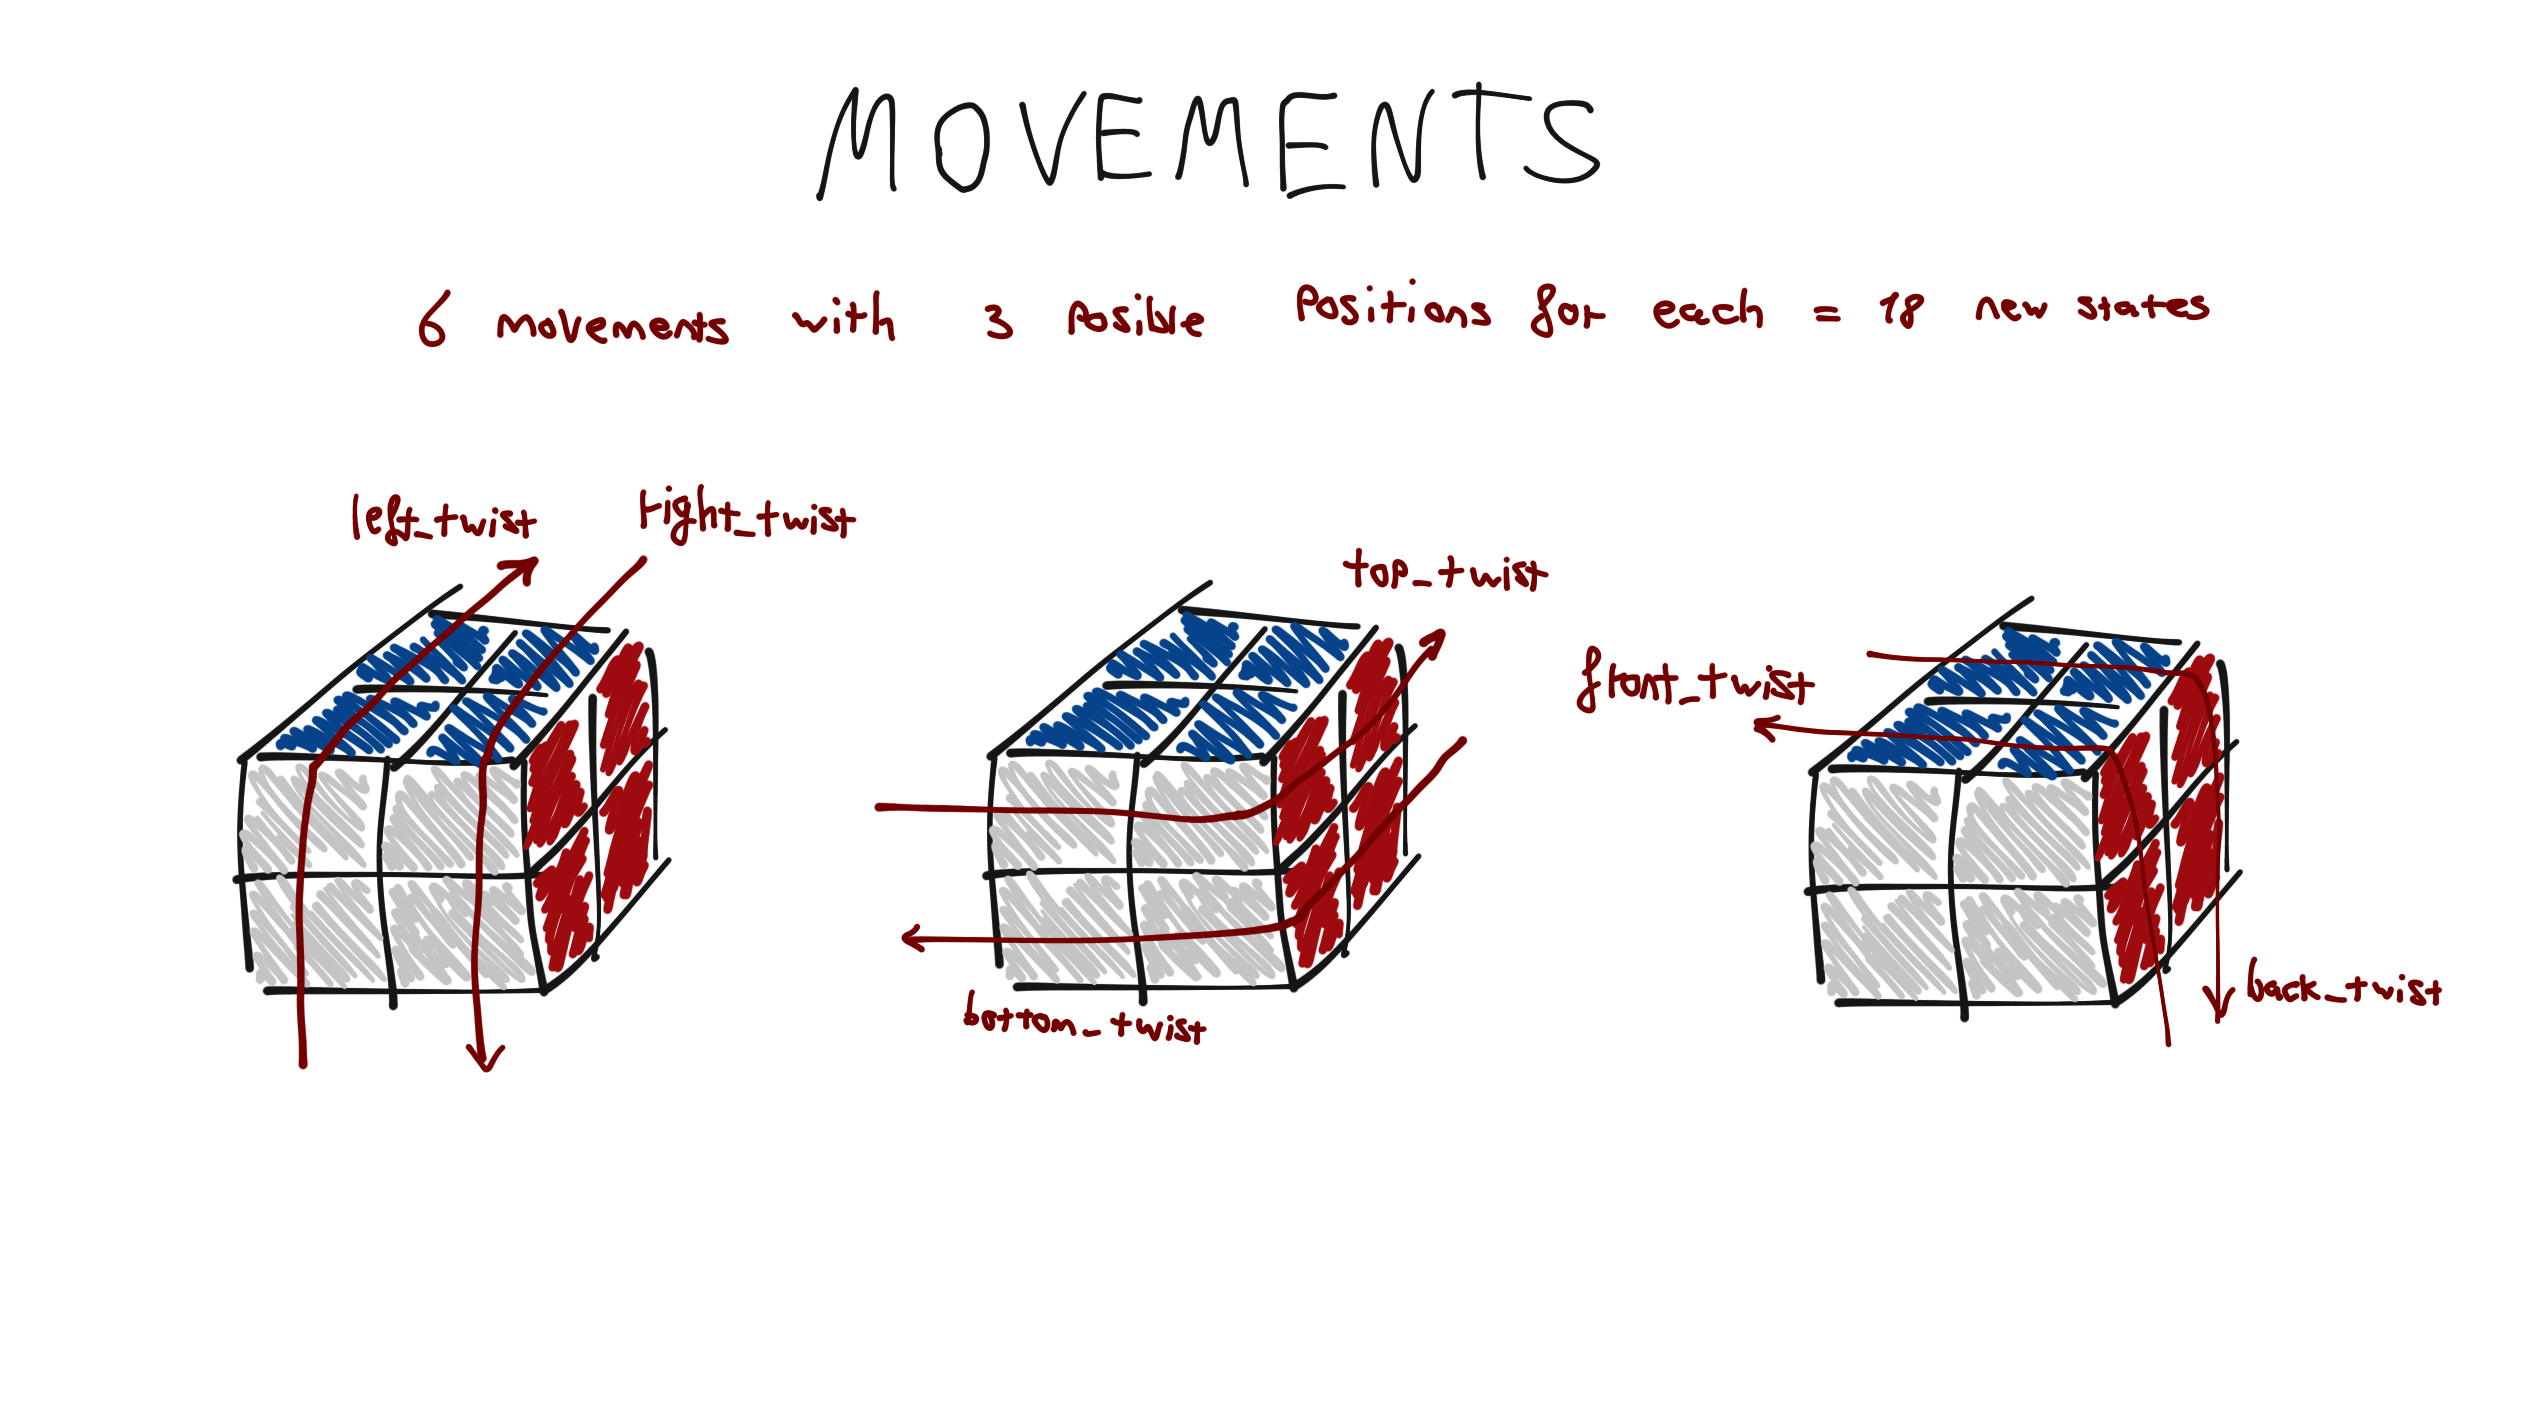 MOVEMENTS
6 movements with 3 posible positions for each = 18 new states
left_twist
right_twist
top_twist
bottom_twist
front_twist
back_twist